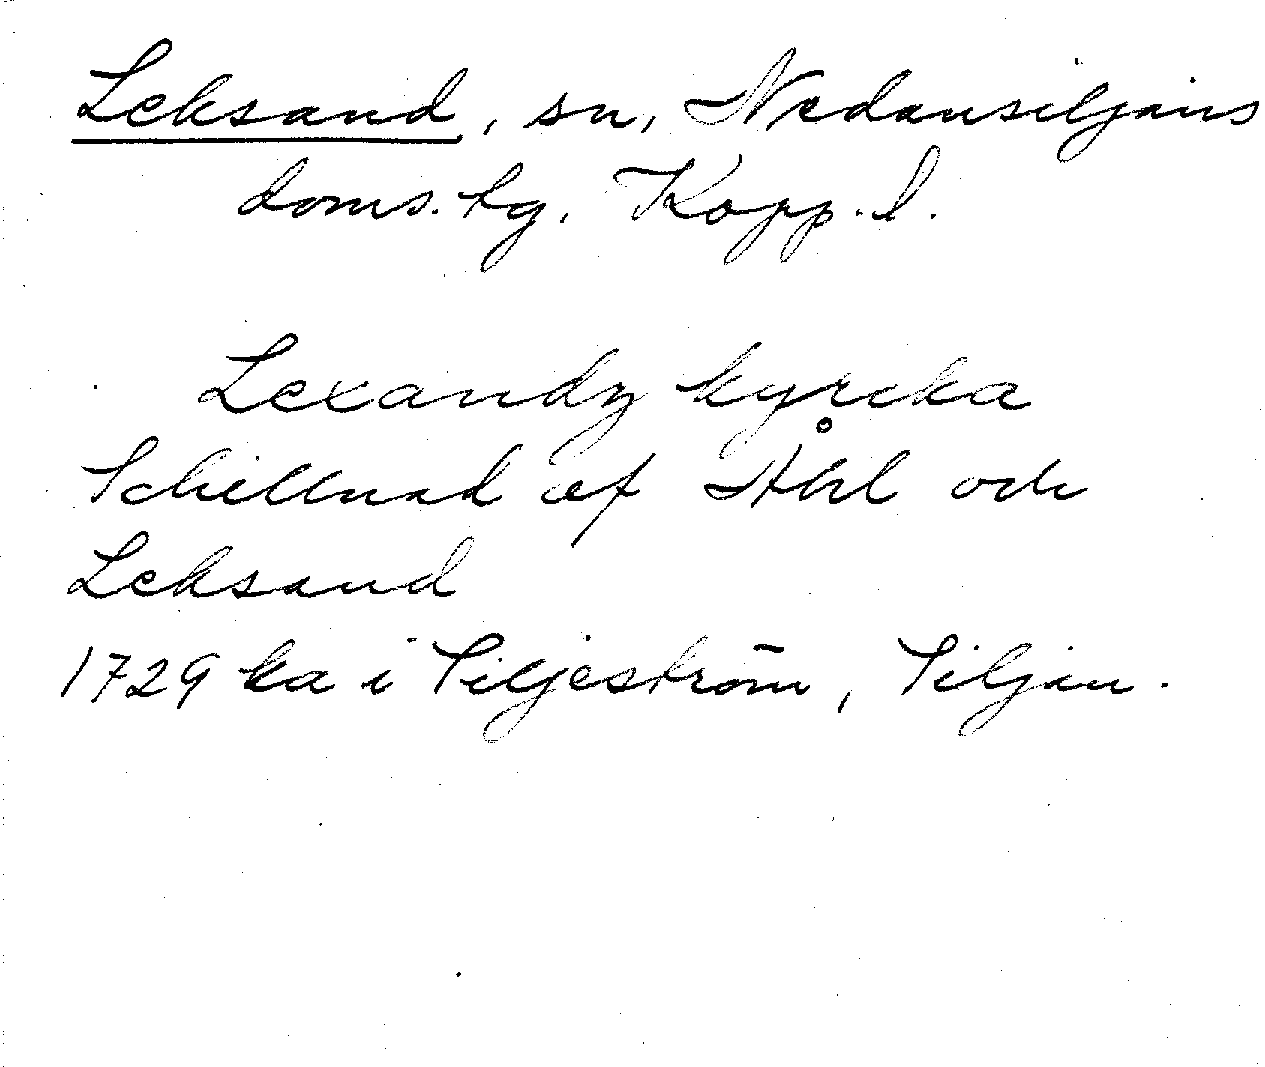 Leksand, sn, Nedansiljans
doms. tg. Kopp. l.
Lexandz kyrcka
Schillnad af Åhl och
Leksand
1729 ka i Siljeström, Siljan.